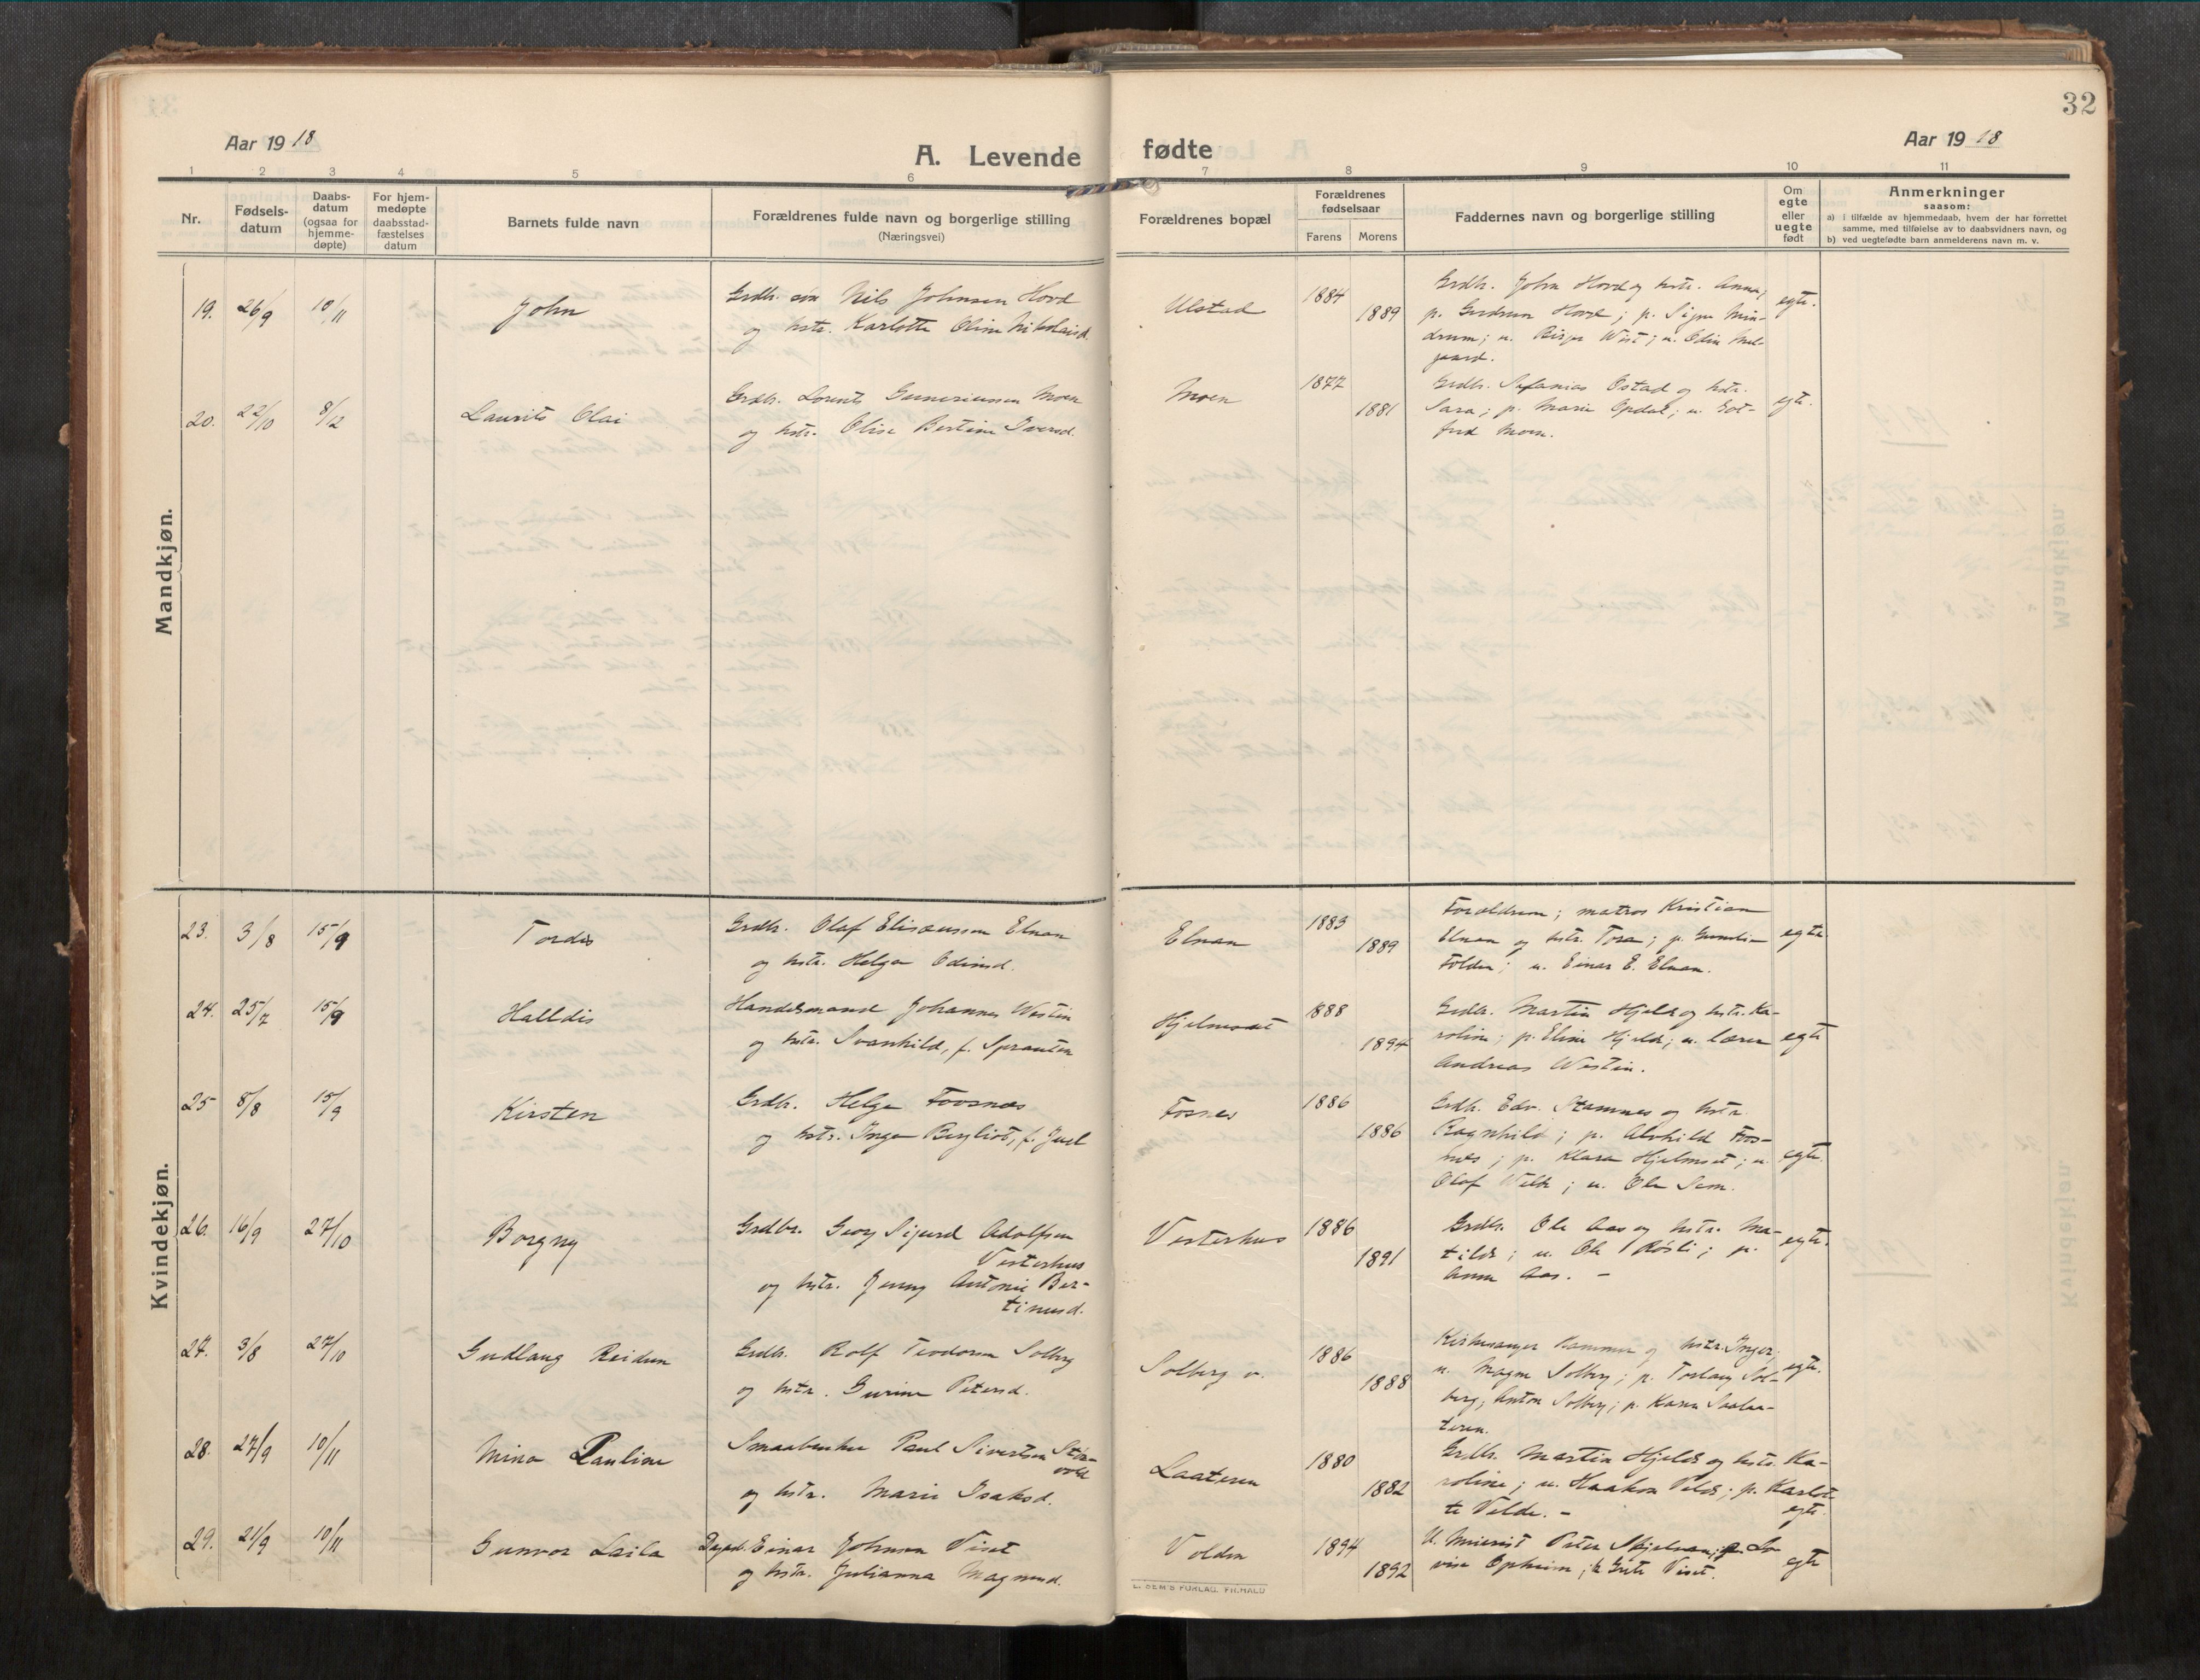 32
Aar 19 18
A. Levende
fødte
Aar 19 18
1 2 3 4 5 6 7 8 9 10 11
Nr.
Fødsels-
datum
Daabs-
datum
(ogsaa for
hjemme-
døpte)
For hjem-
medøpte
daabsstad-
fæstelses
datum
Barnets fulde navn
Forældrenes fulde navn og borgerlige stilling
(Næringsvei)
Forældrenes bopæl
Forældrenes
fødselsaar
Farens Morens
Faddernes navn og borgerlige stilling
Om
egte
eller
uegte
født
Anmerkninger
saasom:
a) i tilfælde av hjemmedaab, hvem der har forrettet
samme, med tilføielse av to daabsvidners navn, og
b) ved uegtefødte barn anmelderens navn m. v.
Mandkjøn.
19. 26/9 10/11 John
Grdbr. søn Nils Johnsen Hovd
og hstr. Karlotte Oline Nikolaisd.
Ulstad 1884 1889
Grdbr. John Hovd og hstr. Anna;
p. Gudrun Hovd; p. Signe Min-
drum; u. Birger West; u. Odin Mel-
gaard.
egte.
20. 22/10 8/12 Laurits Olai
Grdbr. Lorents Gunneriussen Moen
og hstr. Olise Bertine Iversd.
Moen 1877 1881
Grdbr. Sefanias Østad og hstr.
Sara; p. Marie Opdal; u. Got-
fred Moen.
egte.
Kvindekjøn.
23. 3/8 15/9 Tordis
Grdbr. Olaf Elisæussen Elnan
og hstr. Helga Odinsd.
Elnan 1883 1889
Forældrene; matros Kristian
Elnan og hstr. Tora; p. Gunda
Folden; u. Einar E. Elnan.
egte.
24. 25/7 15/9 Halldis
Handelsmand Johannes Westin
og hstr. Svanhild, f. Sprauten
Hjelmset 1888 1894
Grdbr. Martin Hjeld og hstr. Ka-
roline; p. Eline Hjeld; u. lærer
Andreas Westin.
egte
25 8/8 15/9 Kirsten
Grdbr. Helge Foosnæs
og hstr. Inga Bergliot, f. Juel
Fosnes 1886 1886
Grdb. Edv. Stamnes og hstr.
Ragnhild; p. Alvhild Foos-
næs; p. Klara Hjelmset; u.
Olaf Velde; u. Ole Sem.
egte.
26. 16/9 27/10 Borgny
Grdbr. Georg Sigurd Adolfsen
Vesterhus
og hstr. Jenny Antonie Ber-
tinusd.
Vesterhus 1886 1891
Grdbr. Ole Aas og hstr. Ma-
tilde; u. Ole Røsli; p.
Anna Aas. -
egte.
27. 3/8 27/10 Gudlaug Reidun
Grdbr. Rolf Teodorsen Solberg
og hstr. Gurine Petersd.
Solberg v. 1886 1888
Kirkesanger Hammer og hstr. Inger;
u. Magne Solberg; p. Torlaug Sol-
berg; Anton Solberg; p. Karen
egte.
28. 27/9 10/11 Mina Pauline
Smaabruker Paul Sivertsen Stor-
vold
og hstr. Marie Isaksd.
Laateren 1880 1882
Grdbr. Martin Hjeld og hstr. Ka-
roline; u. Haakon Velde; p. Karlot
te Velde. -
egte.
29. 21/9 10/11 Gunvor Laila
Einar Johnsen Viset
og hstr. Julianna Magnusd.
Volden 1894 1892
U. Meierist Peter Skjelvan; p. Lo
vise Opheim; p. Grete Viset.
egte
E. SEM'S FORLAG, FR.HALD